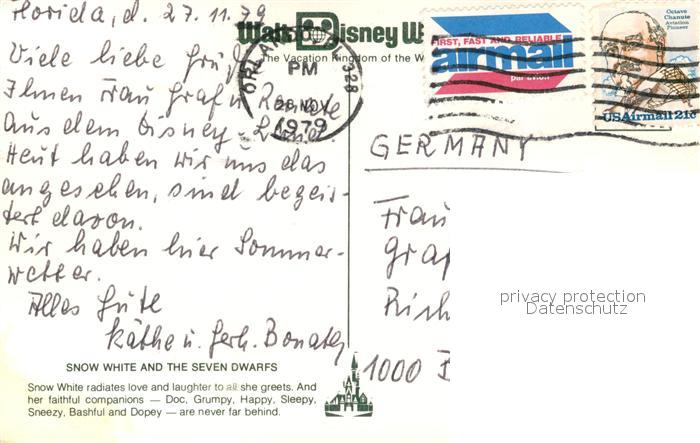 Florida, d. 27.11.79
Viele liebe Grüße
Ihnen Frau Graf u. Renate
aus dem Disney-Land.
Heut haben wir uns das
angesehen, sind begeis-
tert davon.
Wir haben hier Sommer-
wetter.
Alles Gute
Käthe u. Gerh.
SNOW WHITE AND THE SEVEN DWARFS
Snow White radiates love and laughter to all she greets. And
her faithful companions — Doc, Grumpy, Happy, Sleepy,
Sneezy, Bashful and Dopey — are never far behind.
Walt Disney W
The Vacation Kingdom of the W
PM
28 NOV
1979
328
FIRST, FAST AND RELIABLE
airmail
par avion
Octave
Chanute
Aviation
Pioneer
USAirmail 21c
GERMANY
Frau
Graf
Rich
1000
privacy protection
Datenschutz